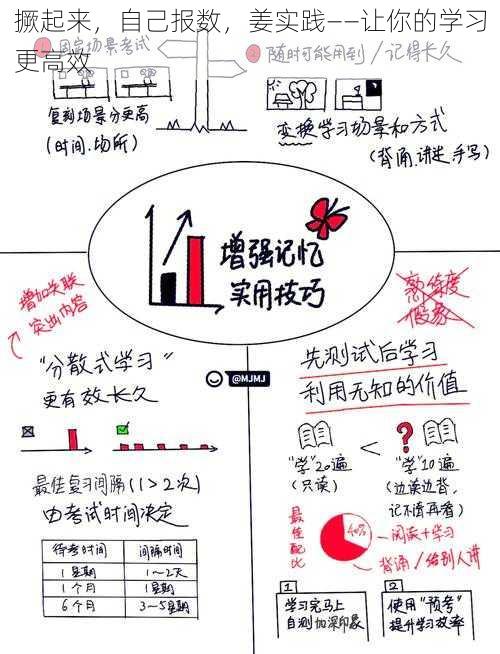 撅起来，自己报数，姜实践——让你的学习
更高效
1 固定场景考试
复刻场景分更高
(时间.场所)
2 随时可能用到/记得长久
变换学习场景和方式
(背诵.讲述.手写)
增强记忆
实用技巧
增加关联
突出内容
"分散式学习"
更有效长久
最佳复习间隔(11>2次)
由考试时间决定
待考时间 间隔时间
1星期 1~2天
1个月 1星期
6个月 3~5星期
@MJMJ
熟练度
假象
先测试后学习
利用无知的价值
"学"20遍
(只读)
<
?
"学"10遍
(边读边背,
记不清再看)
最佳配比
40%
阅读+学习
背诵/给别人讲
1
学习完马上
自测加深印象
2
使用"预考"
提升学习效率